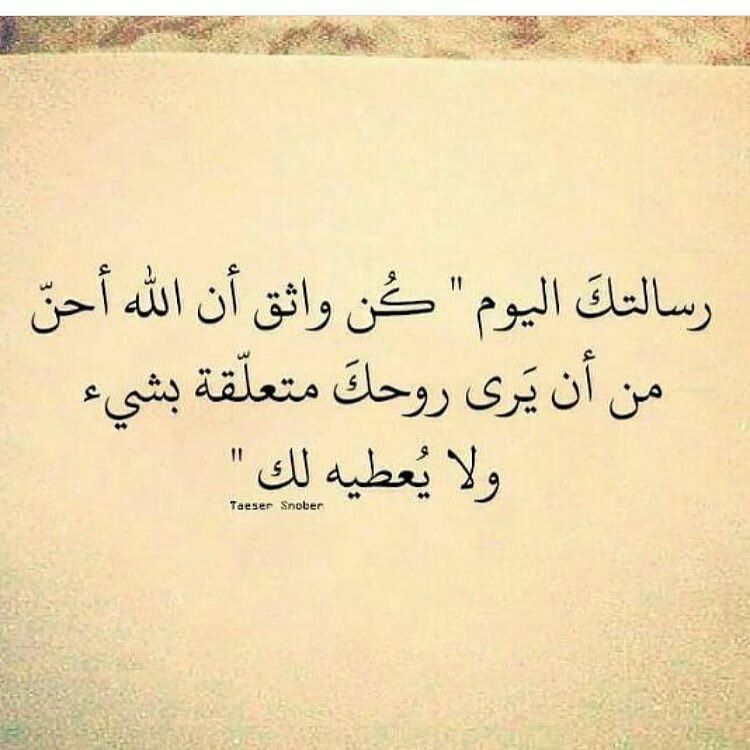 رسالتكَ اليوم " كُن واثق أن الله أحنّ
من أن يَرى روحكَ متعلّقة بشيء
ولا يُعطيه لك "
Taeser Snober